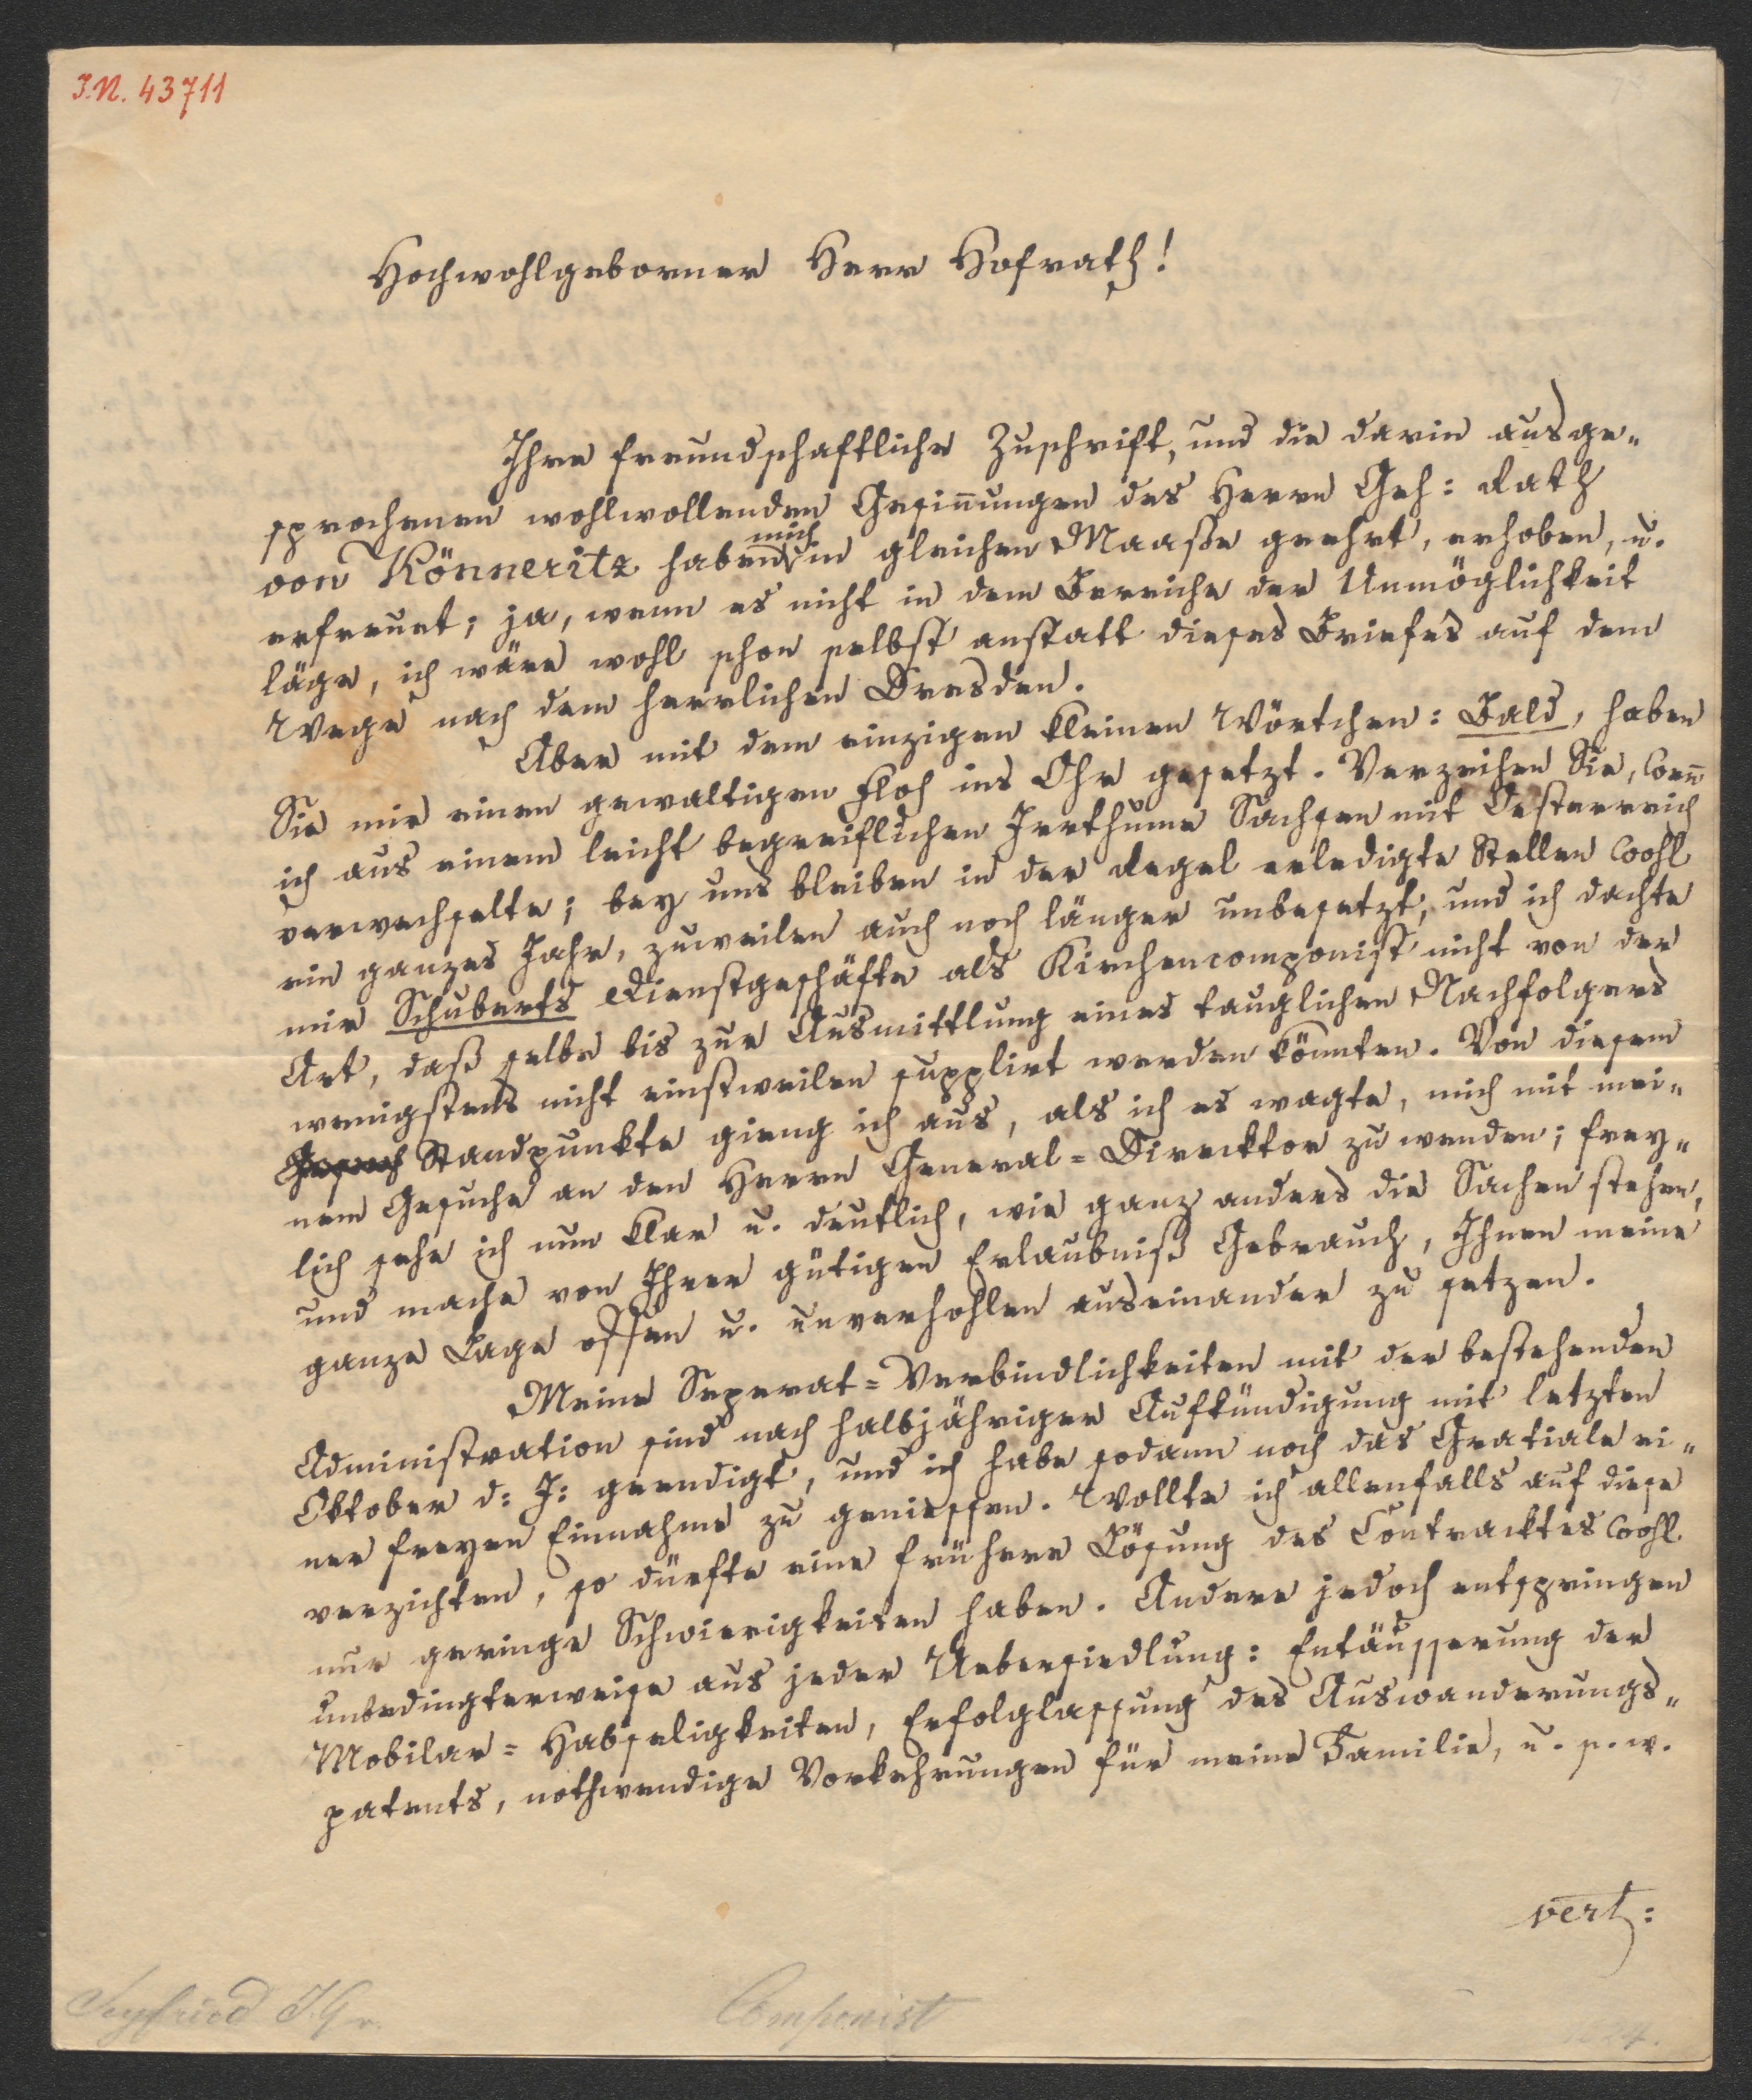 I.N. 43711
Hochwohlgeborner Herr Hofrath!
Ihre freundschaftliche Zuschrift, und die darin ausge„
sprochenen wohlwollenden Gesin̅ungen des Herrn Geh: Rath
von Könneritz haben mich in gleichen Maaße geehrt, erhoben, u.
erfreuet; ja, wenn es nicht in dem Bereiche der Unmöglichkeit
läge, ich wäre wohl schon selbst anstatt dieses Briefes auf dem
Wege nach dem herrlichen Dresden.
Aber mit dem einzigen kleinen Wörtchen: Bald, haben
Sie mir einen gewaltigen Floh ins Ohr gesetzt. Verzeihen Sie, wen̅
ich aus einem leicht begreiflichen Irrthume Sachsen mit Oesterreich
verwechselte; bey uns bleiben in der Regel erledigte Stellen wohl
ein ganzes Jahr, zuweilen auch noch länger unbesetzt, und ich dachte
mir Schuberts Dienstgeschäfte als Kirchencomponist nicht von der
Art, daß selbe bis zur Ausmittlung eines tauglichen Nachfolgers
wenigstens nicht einstweilen supplirt werden könnten. Von diesem
Standpunkte gieng ich aus, als ich es wagte, mich mit mei„
nem Gesuche an den Herrn General=Direcktor zu wenden; frey„
lich sehe ich nun klar u. deutlich, wie ganz anders die Sachen stehen,
und mache von Ihrer gütigen Erlaubniß Gebrauch, Ihnen meine
ganze Lage offen u. unverhohlen auseinander zu setzen.
Meine Seperat=Verbindlichkeiten mit der bestehenden
Administration sind nach halbjähriger Aufkündigung mit letzten
Oktober d: J: geendigt, und ich habe sodann noch das Gratiale ei„
ner freyen Einnahme zu geniessen. Wollte ich allenfalls auf diese
verzichten, so dürfte eine frühere Lösung des Contracktes wohl
nur geringe Schwierigkeiten haben. Andere jedoch entspringen
unbedingterweise aus jeder Uebersiedlung: Entäusserung der
Mobilar=Habseligkeiten, Erfolglassung des Auswanderungs„
patents, nothwendige Vorkehrungen für meine Familie, u. s. w.
vert:
Seyfried I. v.
Componist